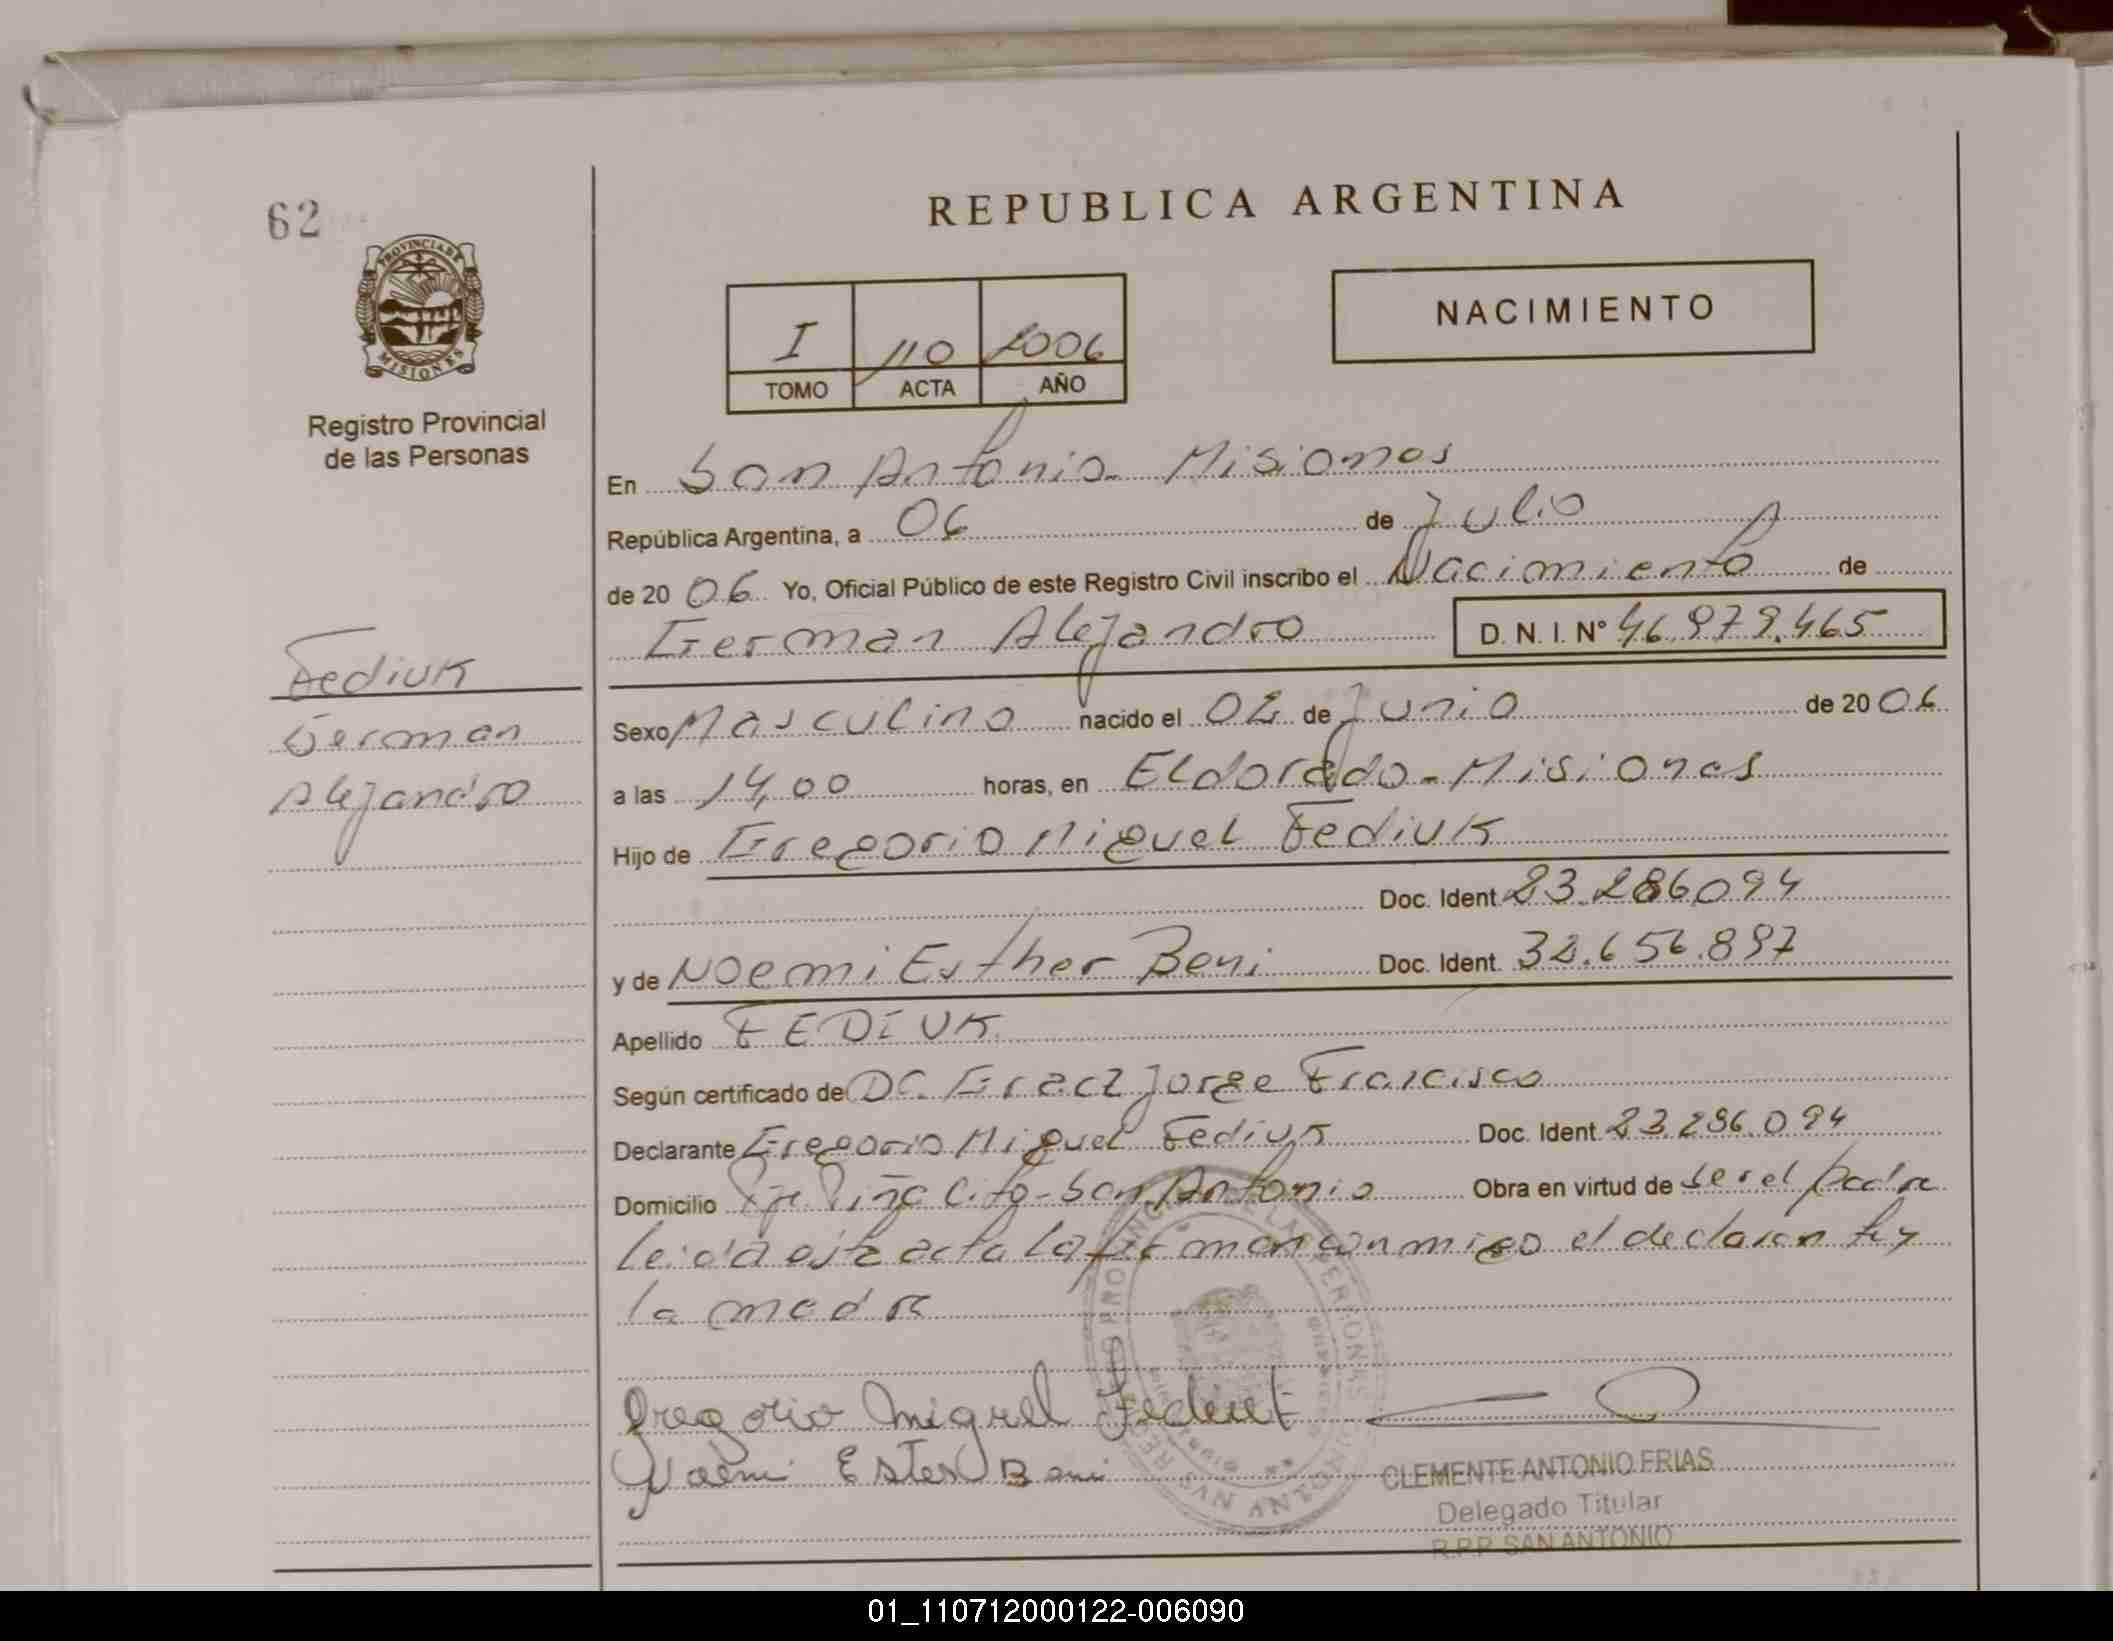 REPUBLICA ARGENTINA
62
PROVINCIA DE
MISIONES
Registro Provincial
de las Personas
NACIMIENTO
I 110 2006
TOMO ACTA AÑO
En San Antonio - Misiones
República Argentina, a 06 de Julio
de 20 06 Yo, Oficial Público de este Registro Civil inscribo el Nacimiento de
German Alejandro D. N. I. N° 46.979.465
Fediuk
German
Alejandro
Sexo Masculino nacido el 02 de Junio de 20 06
a las 14,00 horas, en Eldorado - Misiones
Hijo de Gregorio Miguel Fediuk
Doc. Ident. 23.286.094
y de Noemi Esther Beni Doc. Ident. 32.656.897
Apellido FEDIUK
Según certificado de DC. Jorge Francisco
Declarante Gregorio Miguel Fediuk Doc. Ident. 23.286.094
Domicilio Piña - San Antonio Obra en virtud de ser el padre
leida esta acta la firman conmigo el declarante y
la madre
Gregorio Miguel
Noemi Ester Beni
CLEMENTE ANTONIO FRIAS
Delegado Titular
R.P.P. SAN ANTONIO
01_110712000122-006090